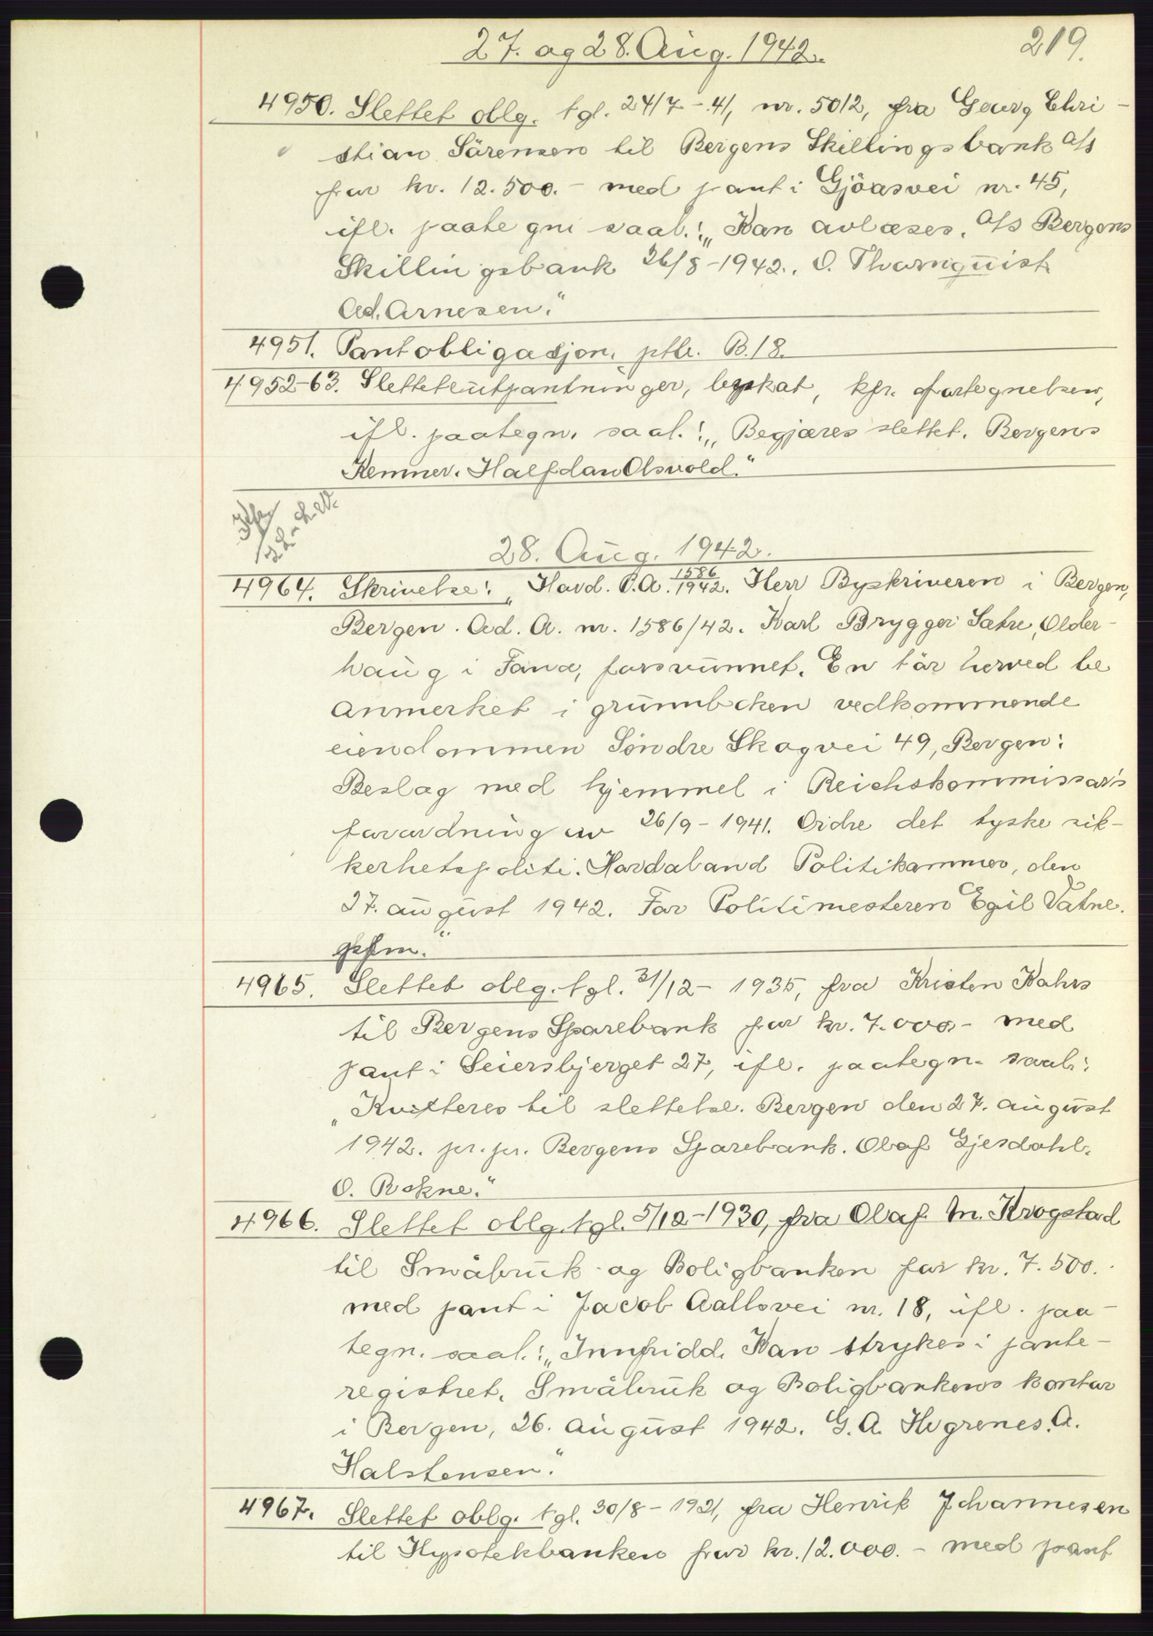 27. og 28. Aug. 1942. 219.
4950. Slettet oblg. tgl. 24/7-41, nr. 5012, fra Georg Chri-
stian Sörensen til Bergens Skillingsbank A/S
for kr. 12.500.- med pant i Gjöasvei nr. 45,
ifl. paategn. saal.: „Kan avlæses. A/S Bergens
Skillingsbank 26/8-1942. O. Thornquist.
Ad. Arnesen."
4951. Pantobligasjon, ptb. B.18.
4952-63. Slettete utpantninger, byskat, kfr. fortegnelsen,
ifl. paategn. saal.: „Begjæres slettet. Bergens
Kemner. Halfdan Olsvold."
28. Aug. 1942.
4964. Skrivelse: „Hord. P.A. 1586/1942. Herr Byskriveren i Bergen,
Bergen. Ad. A. nr. 1586/42. Karl Brygger Sætre, Older-
haug i Fana, forsvunnet. En tör herved be
anmerket i grunnboken vedkommende
eiendommen Söndre Skogvei 49, Bergen:
Beslag med hjemmel i Reichskommissars
forordning av 26/9-1941. Ordre det tyske sik-
kerhetspoliti. Hordaland Politikammer, den
27. august 1942. For Politimesteren Egil Vatne.
gsfm."
4965. Slettet oblg. tgl. 31/12-1935, fra Kristen Kahrs
til Bergens Sparebank for kr. 7.000.- med
pant i Seiersbjerget 27, ifl. paategn. saal.:
„Kvitteres til slettelse. Bergen den 27. august
1942. pr. pr. Bergens Sparebank. Olaf Gjesdahl.
O. Rokne."
4966. Slettet oblg. tgl. 5/12-1930, fra Olaf M. Krogstad
til Småbruk- og Boligbanken for kr. 7.500.-
med pant i Jacob Aallsvei nr. 18, ifl. paa-
tegn. saal.: „Innfridd. Kan strykes i pante-
registret. Småbruk og Boligbankens kontor
i Bergen, 26. august 1942. G. A. Hvgrenes. A.
Halstensen."
4967. Slettet oblg. tgl. 30/8-1921, fra Henrik Johannesen
til Hypotekbanken for kr. 12.000.- med pant